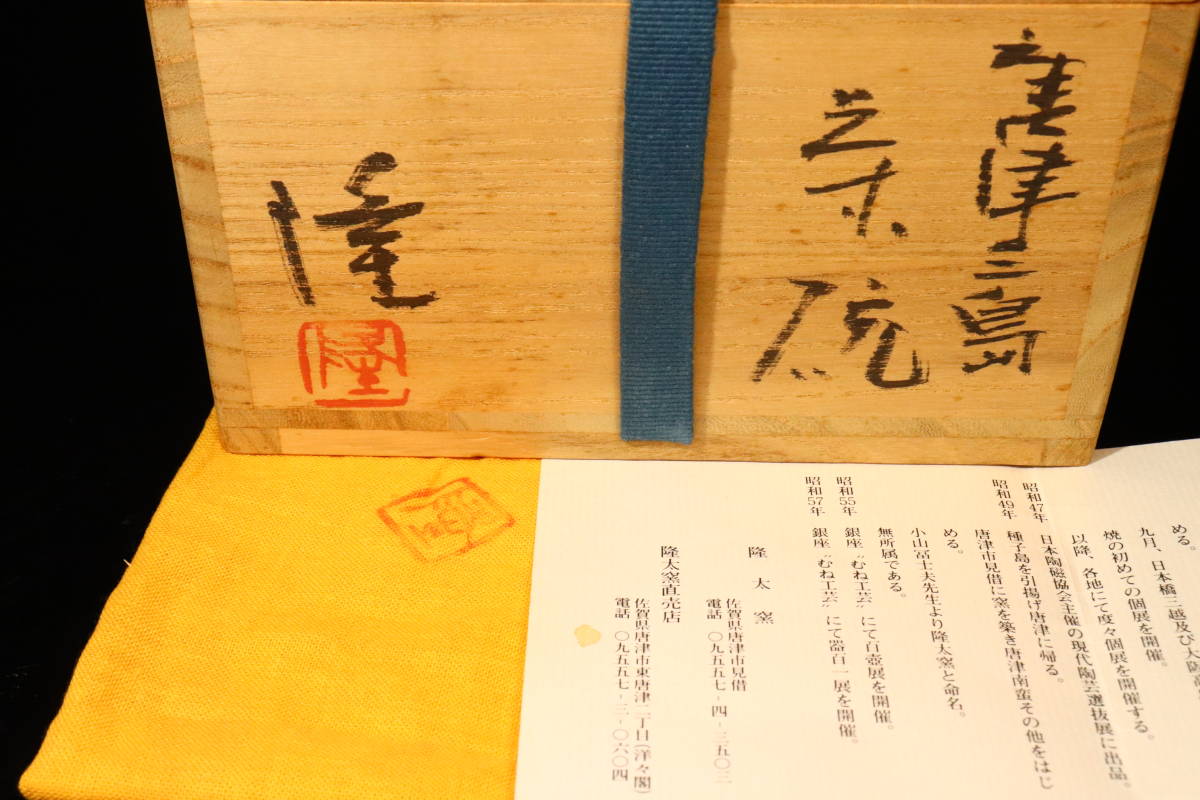 唐津三島
茶碗
隆
隆
める。
九月、日本橋三越及び大阪高
焼の初めての個展を開催。
以降、各地にて度々個展を開催する。
昭和47年 日本陶磁協会主催の現代陶芸選抜展に出品。
昭和49年 種子島を引揚げ唐津に帰る。
唐津市見借に窯を築き唐津南蛮その他をはじ
める。
小山冨士夫先生より隆太窯と命名。
無所属である。
昭和55年 銀座〝むね工芸〟にて百壺展を開催。
昭和57年 銀座〝むね工芸〟にて器百一展を開催。
隆太窯
佐賀県唐津市見借
電話 〇九五五七-四-三五〇三
隆太窯直売店
佐賀県唐津市東唐津二丁目(洋々閣)
電話 〇九五五七-三-〇六〇四